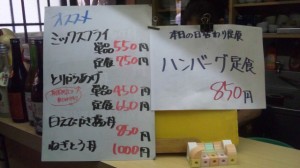 オススメ
ミックスフライ
単品 550円
定食 750円
とりからあげ
単品 450円
定食 650円
850円
ねぎとろ丼
1000円
本日の日替わり定食
ハンバーグ定食
850円